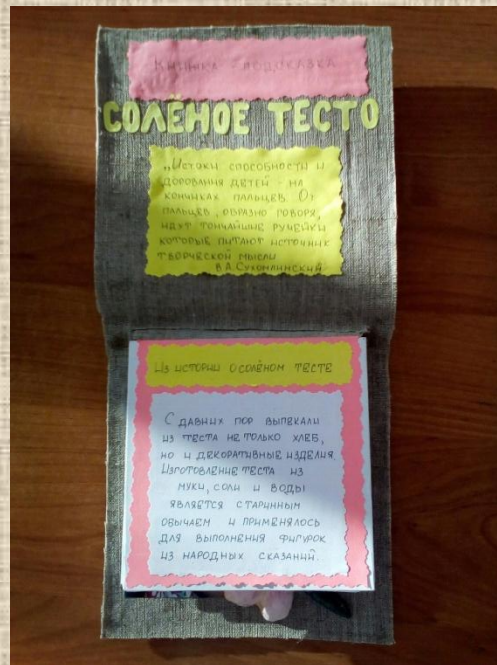 Книжка-подсказка
СОЛЁНОЕ ТЕСТО
„Истоки способности и
дарования детей - на
кончиках пальцев. От
пальцев, образно говоря,
идут тончайшие ручейки
которые питают источник
творческой мысли
В.А. Сухомлинский.
Из истории о солёном тесте
С давних пор выпекали
из теста не только хлеб,
но и декоративные изделия.
Изготовление теста из
муки, соли и воды
является старинным
обычаем и применялось
для выполнения фигурок
из народных сказаний.